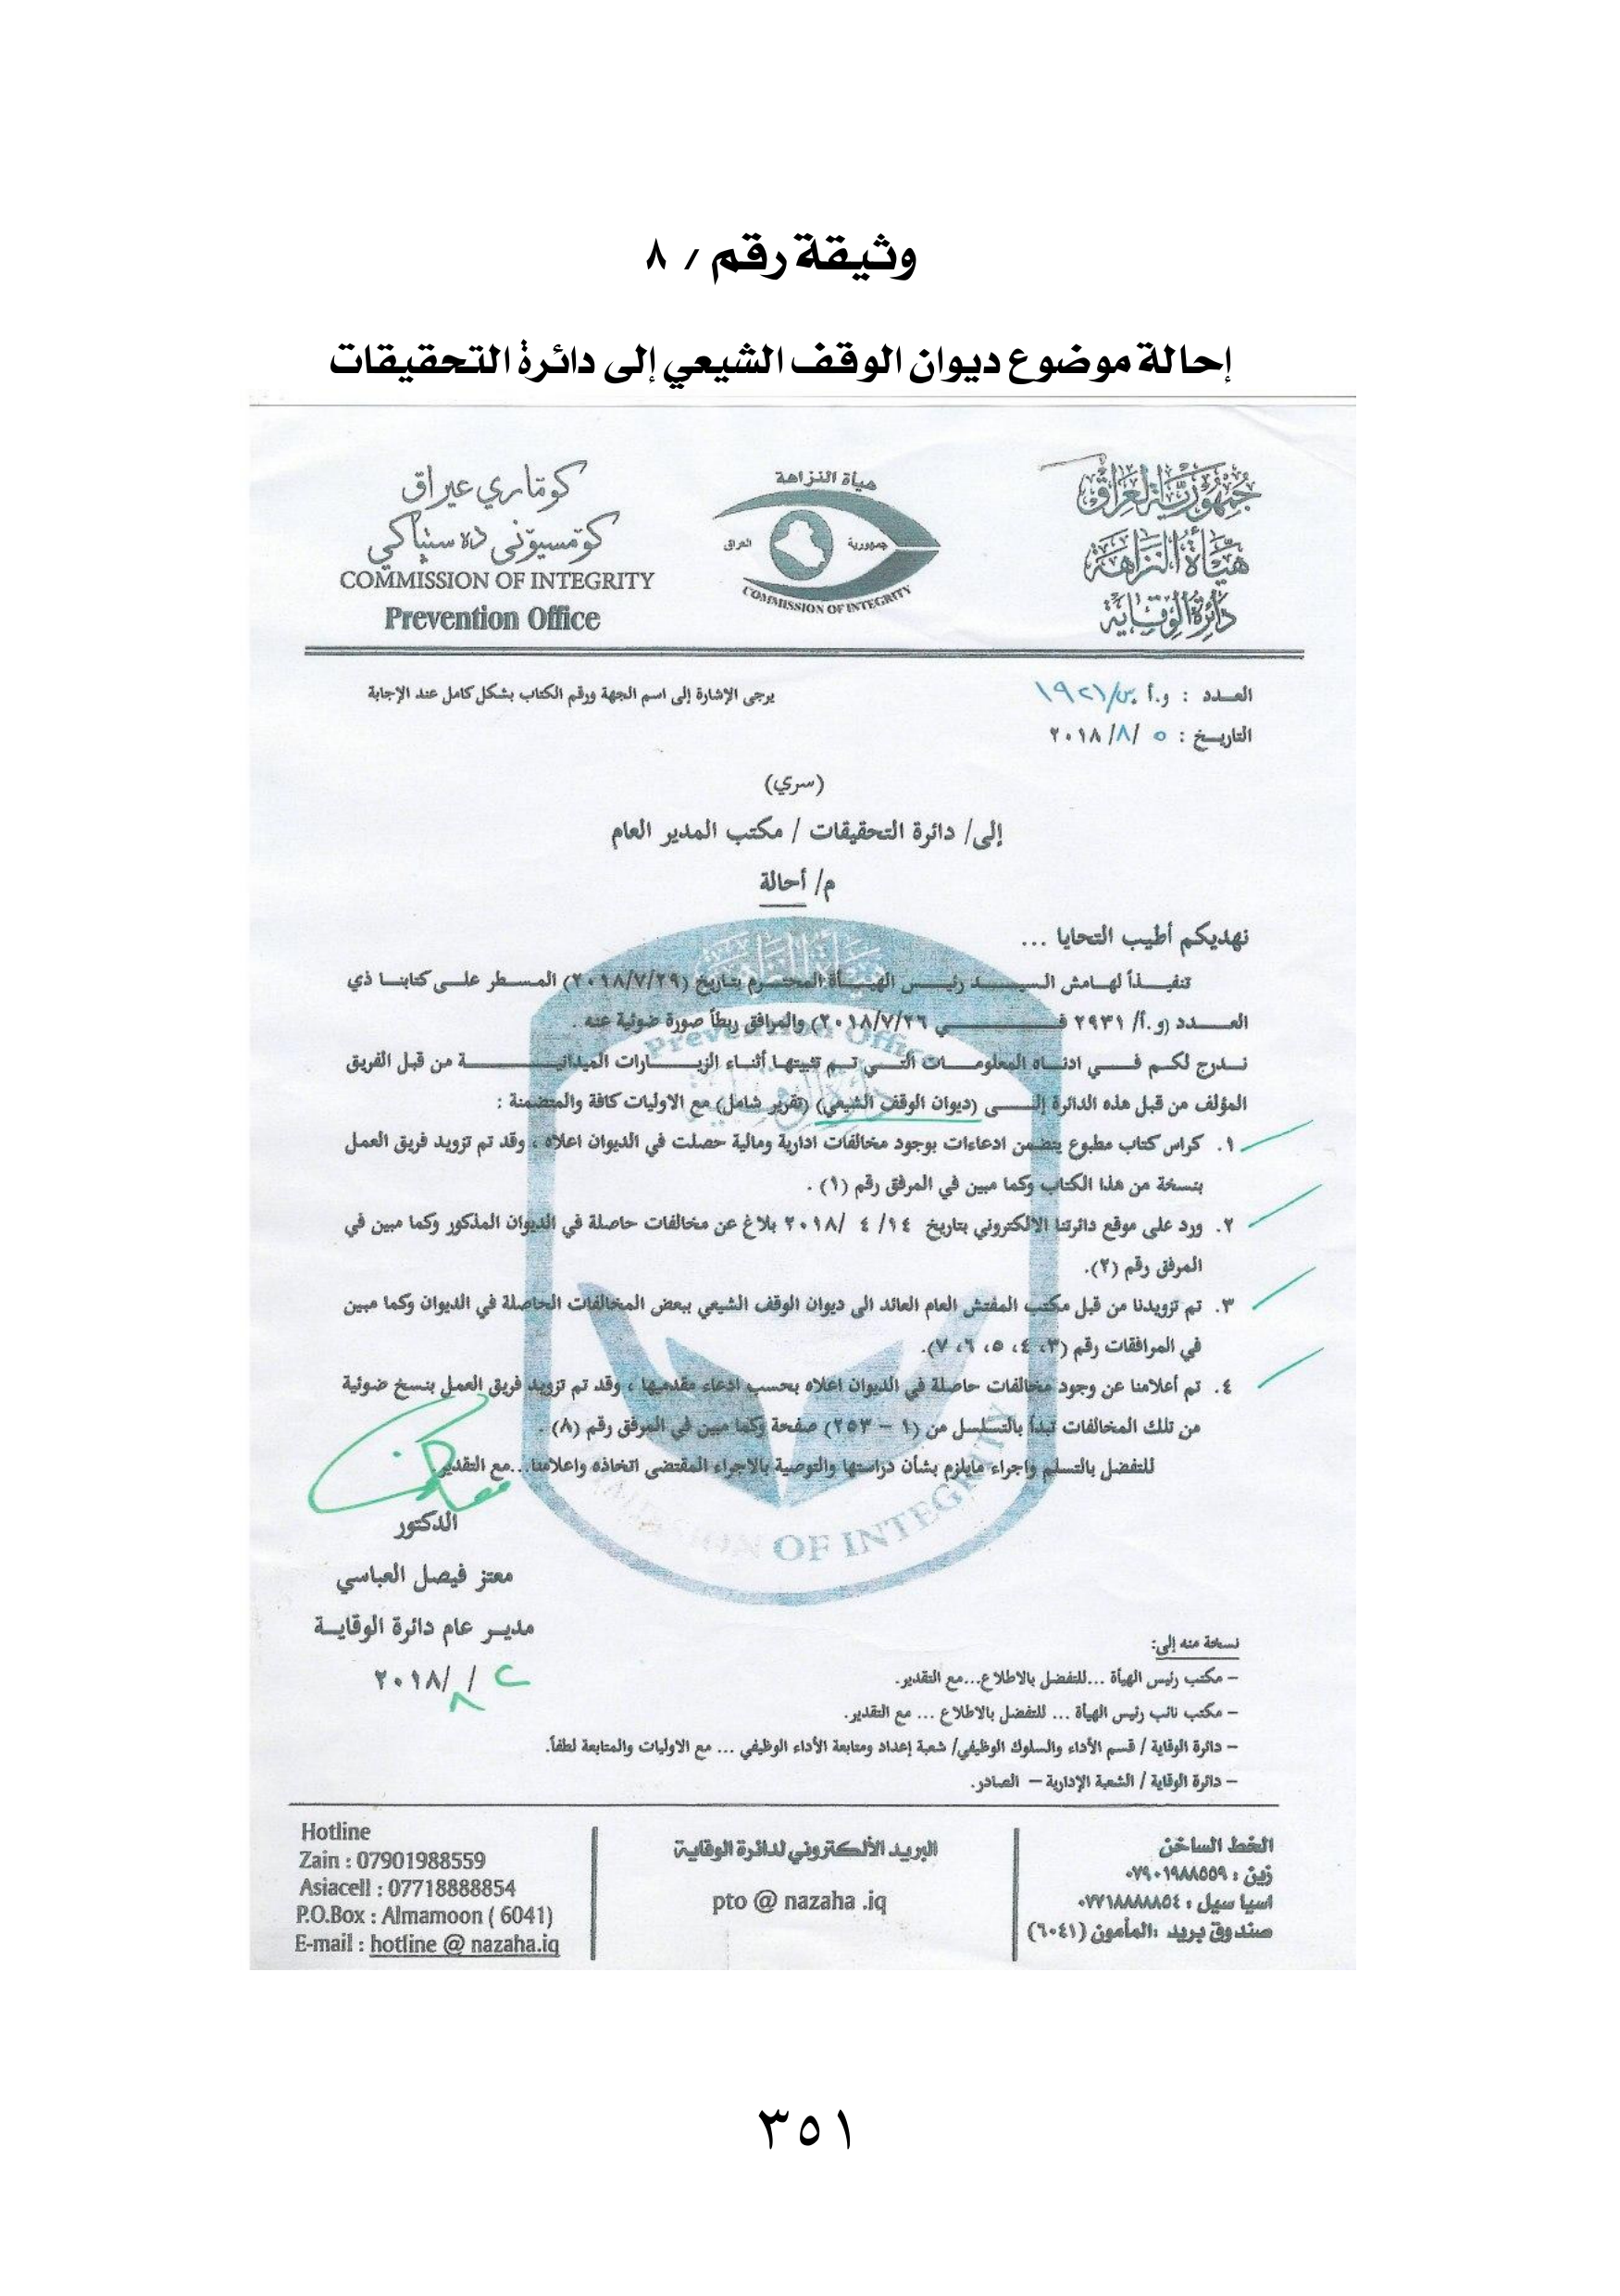 وثيقة رقم / ٨
إحالة موضوع ديوان الوقف الشيعي إلى دائرة التحقيقات
جمهورية العراق
هيأة النزاهة
دائرة الوقاية
هيأة النزاهة
جمهورية
العراق
COMMISSION OF INTEGRITY
كوماري عيراق
كومسيوني ده ستباكي
COMMISSION OF INTEGRITY
Prevention Office
العدد : و.أ س/١٩٢١
يرجى الإشارة إلى اسم الجهة ورقم الكتاب بشكل كامل عند الإجابة
التاريخ : ٥ /٨/ ٢٠١٨
(سري)
إلى/ دائرة التحقيقات / مكتب المدير العام
م/ أحالة
نهديكم أطيب التحايا ...
تنفيذاً لهامش السيد رئيس الهيأة المحترم بتاريخ (٢٠١٨/٧/٢٩) المسطر على كتابنا ذي
العدد (و.أ/ ٢٩٣١ في ٢٠١٨/٧/٢٦) والمرافق ربطاً صورة ضوئية عنه .
ندرج لكم في ادناه المعلومات التي تم تثبيتها أثناء الزيارات الميدانية من قبل الفريق
المؤلف من قبل هذه الدائرة إلى (ديوان الوقف الشيعي) (تقرير شامل) مع الاوليات كافة والمتضمنة :
١. كراس كتاب مطبوع يتضمن ادعاءات بوجود مخالفات ادارية ومالية حصلت في الديوان اعلاه ، وقد تم تزويد فريق العمل
بنسخة من هذا الكتاب وكما مبين في المرفق رقم (١) .
٢. ورد على موقع دائرتنا الالكتروني بتاريخ ١٤/ ٤ /٢٠١٨ بلاغ عن مخالفات حاصلة في الديوان المذكور وكما مبين في
المرفق رقم (٢).
٣. تم تزويدنا من قبل مكتب المفتش العام العائد الى ديوان الوقف الشيعي ببعض المخالفات الحاصلة في الديوان وكما مبين
في المرافقات رقم (٣، ٤، ٥، ٦، ٧).
٤. تم أعلامنا عن وجود مخالفات حاصلة في الديوان اعلاه بحسب ادعاء مقدميها ، وقد تم تزويد فريق العمل بنسخ ضوئية
من تلك المخالفات تبدأ بالتسلسل من (١ – ٢٥٣) صفحة وكما مبين في المرفق رقم (٨) .
للتفضل بالتسلم واجراء مايلزم بشأن دراستها والتوصية بالاجراء المقتضى اتخاذه واعلامنا...مع التقدير.
الدكتور
معتز فيصل العباسي
مدير عام دائرة الوقاية
٢ /٨ /٢٠١٨
نسخة منه إلى:
– مكتب رئيس الهيأة ...للتفضل بالاطلاع...مع التقدير.
– مكتب نائب رئيس الهيأة ... للتفضل بالاطلاع ... مع التقدير.
– دائرة الوقاية / قسم الأداء والسلوك الوظيفي/ شعبة إعداد ومتابعة الأداء الوظيفي ... مع الاوليات والمتابعة لطفاً.
– دائرة الوقاية / الشعبة الإدارية – الصادر.
الخط الساخن
زين : ٠٧٩٠١٩٨٨٥٥٩
اسيا سيل : ٠٧٧١٨٨٨٨٨٥٤
صندوق بريد :المأمون (٦٠٤١)
البريد الألكتروني لدائرة الوقاية
pto @ nazaha .iq
Hotline
Zain : 07901988559
Asiacell : 07718888854
P.O.Box : Almamoon ( 6041)
E-mail : hotline @ nazaha.iq
٣٥١